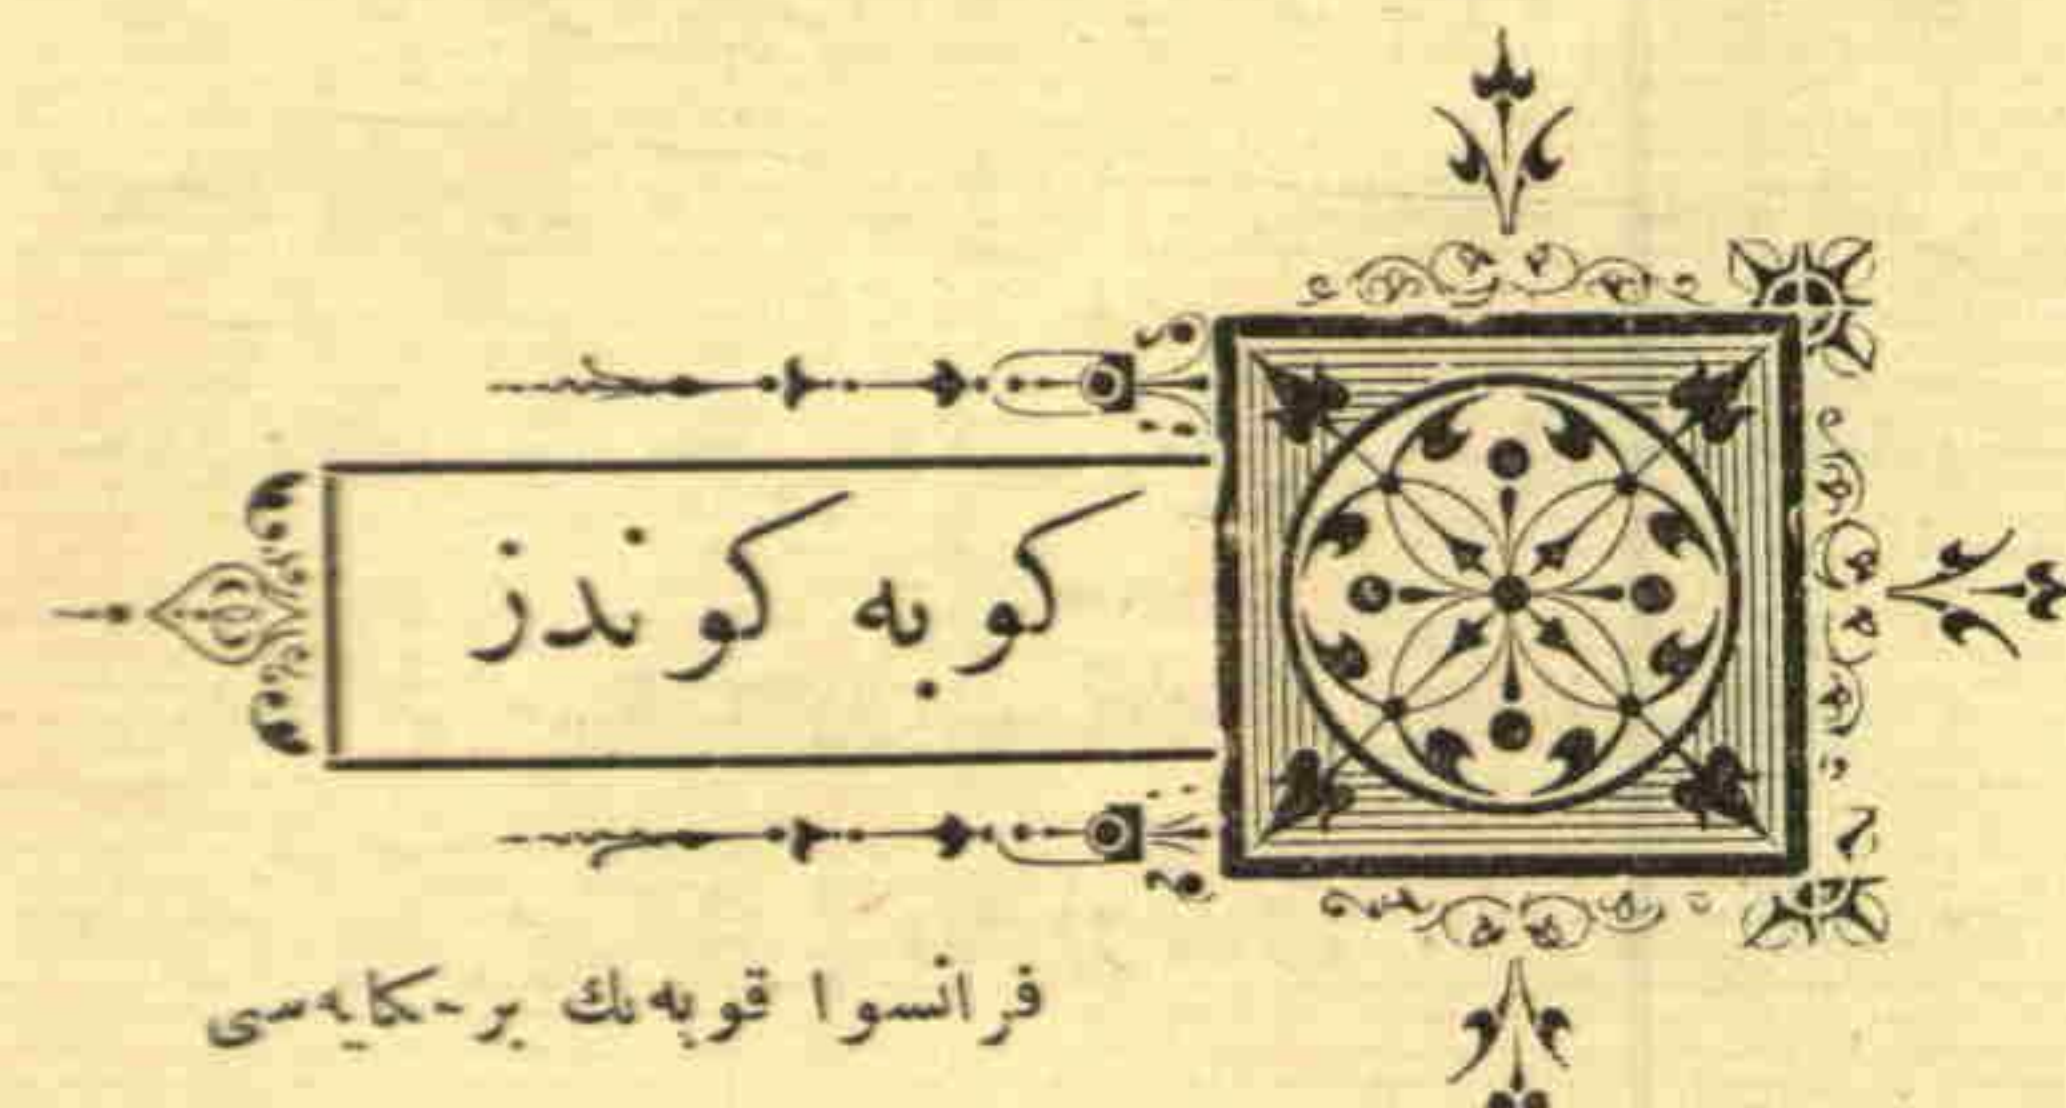 كوبه كوندز
فرانسوا قوپه‌نك بر حكايه‌سى